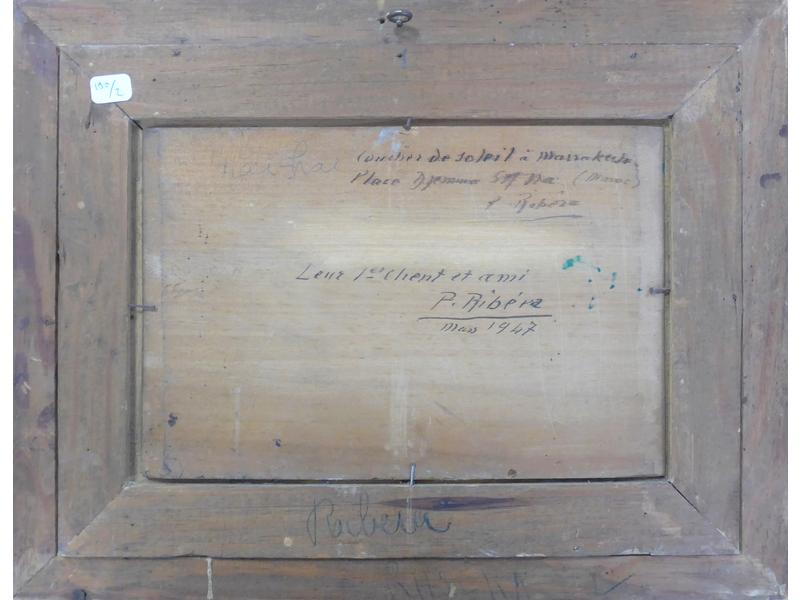 190/2
Coucher de soleil à Marrakech
Place Djemma (Maroc)
P Ribéra
Leur 1er client et ami
P. Ribéra
Mars 1947
Ribera